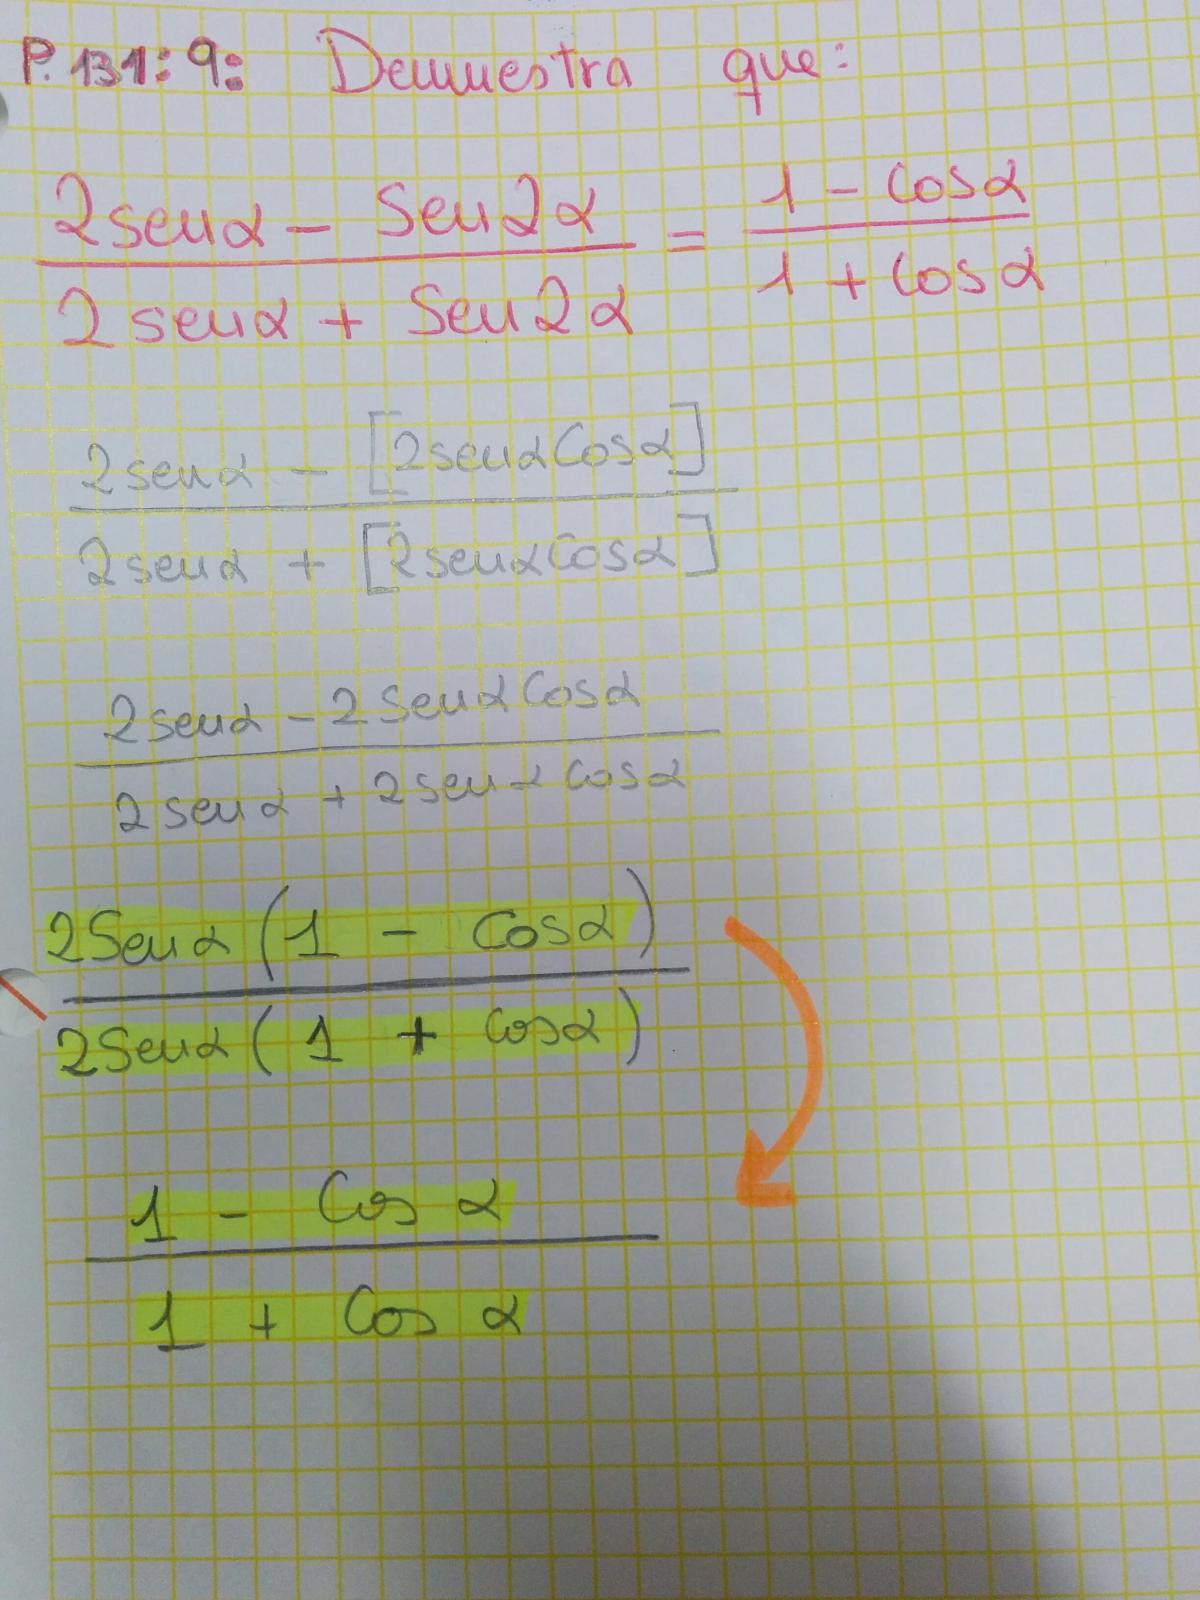 P. 131: 9: Demuestra que:
2senα - Sen2α / 2senα + Sen2α = 1 - Cosα / 1 + Cosα
2senα - [2senαCosα]
2senα + [2senαCosα]
2senα - 2senαCosα
2senα + 2senαCosα
2Senα (1 - Cosα)
2Senα (1 + Cosα)
1 - Cos α
1 + Cos α